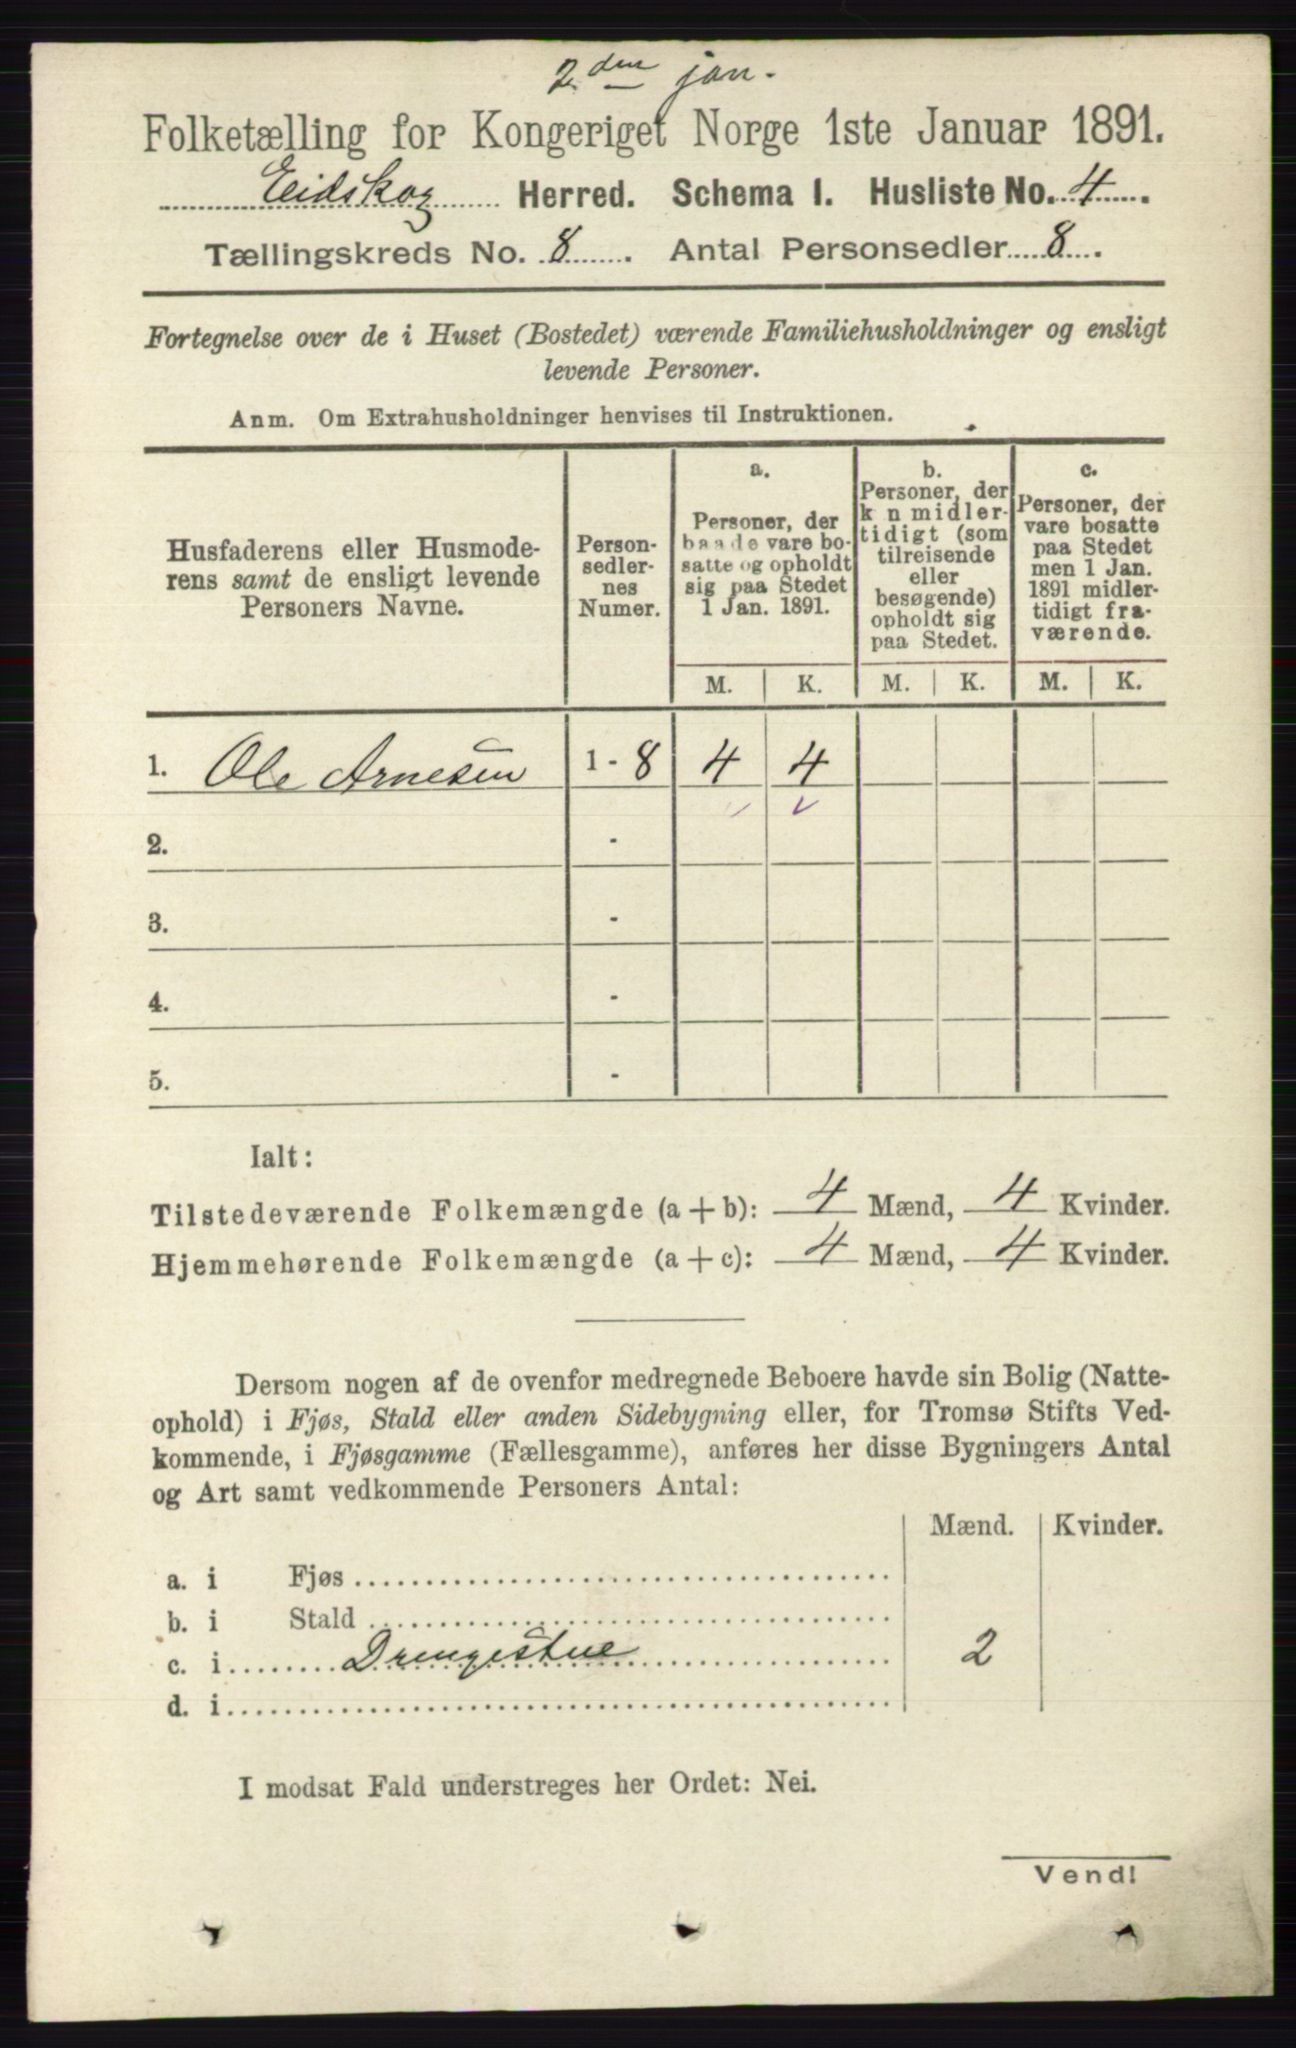 2den jan.
Folketælling for Kongeriget Norge 1ste Januar 1891.
Eidskog Herred. Schema I. Husliste No. 4.
Tællingskreds No. 8. Antal Personsedler 8.
Fortegnelse over de i Huset (Bostedet) værende Familiehusholdninger og ensligt
levende Personer.
Anm. Om Extrahusholdninger henvises til Instruktionen.
Husfaderens eller Husmode-
rens samt de ensligt levende
Personers Navne.
Person-
sedler-
nes
Numer.
a.
Personer, der
baade vare bo-
satte og opholdt
sig paa Stedet
1 Jan. 1891.
b.
Personer, der
k n midler-
tidigt (som
tilreisende
eller
besøgende)
opholdt sig
paa Stedet.
c.
Personer, der
vare bosatte
paa Stedet
men 1 Jan.
1891 midler-
tidigt fra-
værende.
M. K. M. K. M. K.
1. Ole Arnesen 1 - 8 4 4
2. -
3. -
4. -
5. -
Ialt:
Tilstedeværende Folkemængde (a + b): 4 Mænd, 4 Kvinder.
Hjemmehørende Folkemængde (a + c): 4 Mænd, 4 Kvinder.
Dersom nogen af de ovenfor medregnede Beboere havde sin Bolig (Natte-
ophold) i Fjøs, Stald eller anden Sidebygning eller, for Tromsø Stifts Ved-
kommende, i Fjøsgamme (Fællesgamme), anføres her disse Bygningers Antal
og Art samt vedkommende Personers Antal:
Mænd. Kvinder.
a. i Fjøs
b. i Stald
c. i Drengestue 2
d. i
I modsat Fald understreges her Ordet: Nei.
Vend!